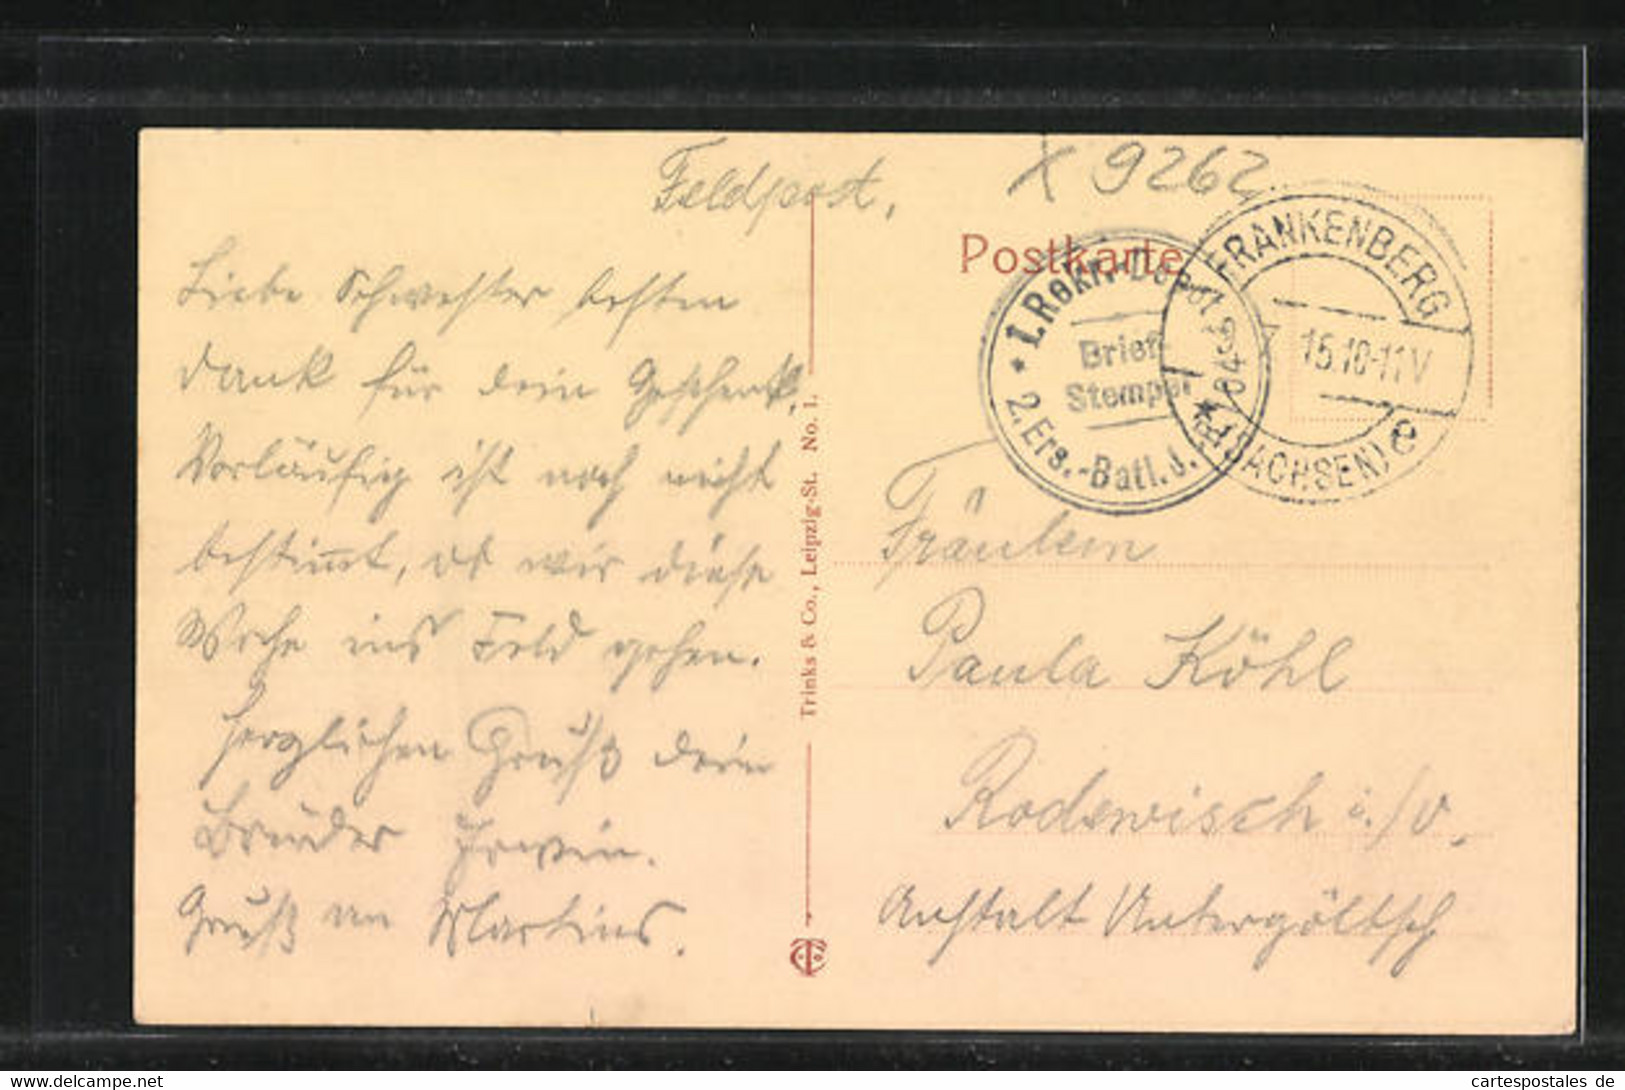 Feldpost.
X 9262
Postkarte
Liebe Schwester besten
Dank für dein Geschenk,
Vorläufig ist noch nicht
bestimmt, ob wir diese
Woche ins Feld gehen.
Herzlichen Gruß dein
Bruder Erwin.
Gruß an Martins.
Trinks & Co., Leipzig-St. No. 1.
I. Rekr.-Depot
Brief-
Stempel
2. Ers.-Batl. J.
FRANKENBERG
15.10-11V
(SACHSEN) e
Fräulein
Paula Köhl
Rodewisch i./V.
Anstalt Untergöltzsch
cartespostales de